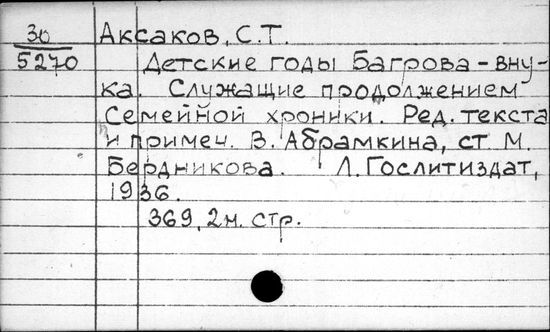 30 Аксаков, С.Т.
5270 Детские годы Багрова-вну-
ка. Служащие продолжением
Семейной хроники. Ред. текста
и примеч. В. Абрамкина, ст М.
Бердникова. Л. Гослитиздат,
1936.
369, 2н. стр.